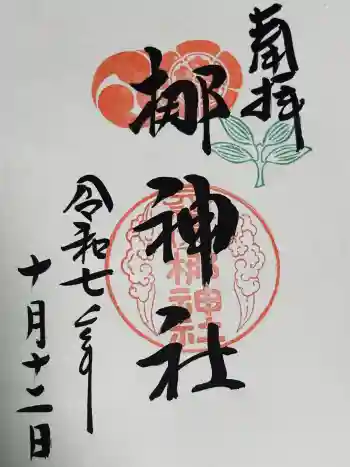 奉拝
梛神社
令和七年
十月十二日
梛神社